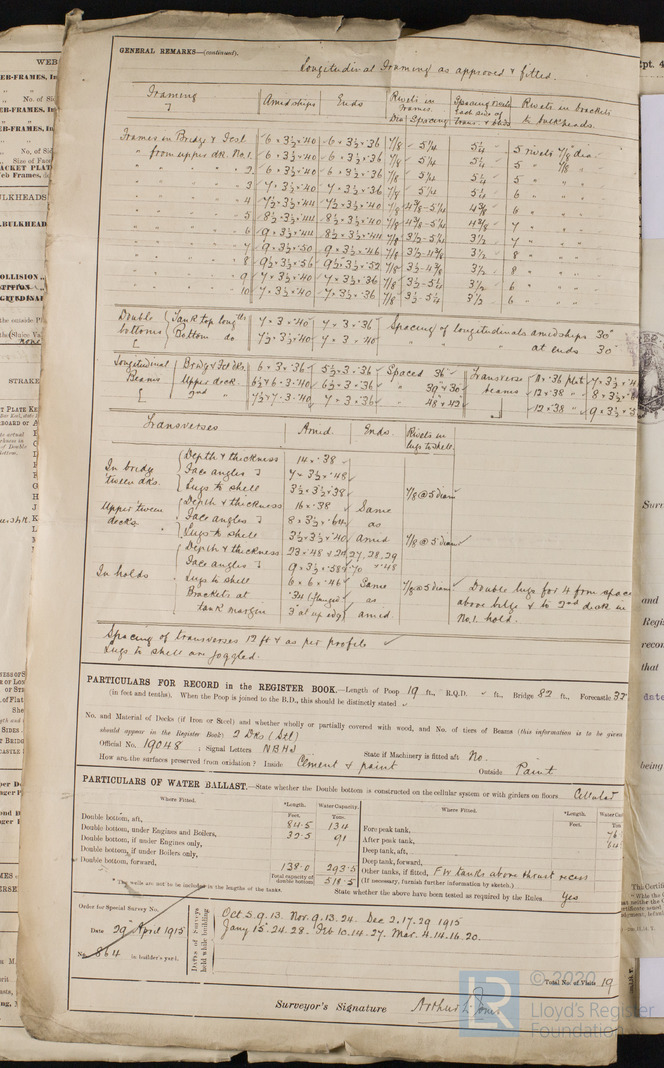 GENERAL REMARKS—(continued).
Longitudinal Framing as approved & fitted.
Framing Amidships Ends Rivets in Frames. Dia Spacing Spacing Rivets each side of Trans. & bhds Rivets in brackets to bulkheads.
Frames in Bridge & Fcsl 6 × 3½ × .40 6 × 3½ × .36 7/8 5¼ 5¼ 5 rivets 7/8 dia
" from upper dk. No. 1 6 × 3½ × .40 6 × 3½ × .36 7/8 5¼ 5¼ 5 " 7/8 "
" " " " 2 6 × 3½ × .40 6 × 3½ × .36 7/8 5¼ 5¼ 5 " " "
" " " " 3 7 × 3½ × .40 7 × 3½ × .36 7/8 5¼ 5¼ 6 " " "
" " " " 4 7½ × 3½ × .44 7½ × 3½ × .40 7/8 4 3/8 - 5¼ 4 3/8 6 " " "
" " " " 5 8½ × 3½ × .44 8½ × 3½ × .40 7/8 4 3/8 - 5¼ 4 3/8 7 " " "
" " " " 6 9 × 3½ × .44 8½ × 3½ × .44 7/8 3½ - 5¼ 3½ 7 " " "
" " " " 7 9 × 3½ × .50 9 × 3½ × .46 7/8 3½ - 4 3/8 3½ 8 " " "
" " " " 8 9½ × 3½ × .56 9½ × 3½ × .52 7/8 3½ - 4 3/8 3½ 8 " " "
" " " " 9 7 × 3½ × .40 7 × 3½ × .36 7/8 3½ - 5¼ 3½ 6 " " "
" " " " 10 7 × 3½ × .40 7 × 3½ × .36 7/8 3½ - 5¼ 3½ 6 " " "
Double bottoms Tank top longtls 7 × 3 × .40 7 × 3 × .36 Spacing of longitudinals amidships 30"
Bottom do 7½ × 3½ × .40 7 × 3 × .40 " " " at ends 30"
Longitudinal Beams Bridge & Fcsl dks. 6 × 3 × .36 5½ × 3 × .36 Spaced 36" Transverse beams 11 × .36 plate 7 × 3½ ×
Upper deck. 6½ × 3 × .40 6½ × 3 × .36 " 39" & 30" 12 × .38 " 8 × 3½ ×
2nd " 7½ × 3 × .40 7 × 3 × .36 " 48" & 42" 12 × .38 " 9 × 3½ ×
Transverses Amid. Ends. Rivets in lugs to shell.
In bridge 'tween dks. Depth & thickness 14 × .38
Face angles 7 × 3½ × .48
Lugs to shell 3½ × 3½ × .38 7/8 @ 5 diam
Upper 'tween decks. Depth & thickness 16 × .38 Same
Face angles 8 × 3½ × .64 as
Lugs to shell 3½ × 3½ × .40 amid 7/8 @ 5 diam
In holds Depth & thickness 23 × .48 27, 28, 29
Face angles 9 × 3½ × .58
Lugs to shell 6 × 6 × .46 Same 7/8 @ 5 diam Double lugs for 4 frm spaces
Brackets at .34 (flanged as above bilge & to 2nd deck in
tank margin 3" at up edge) amid. No. 1 hold.
Spacing of transverses 12 ft & as per profile
Lugs to shell are joggled.
PARTICULARS FOR RECORD in the REGISTER BOOK.—Length of Poop 19 ft., R.Q.D. ft., Bridge 82 ft., Forecastle 32
(in feet and tenths). When the Poop is joined to the B.D., this should be distinctly stated
No. and Material of Decks (if Iron or Steel) and whether wholly or partially covered with wood, and No. of tiers of Beams (this information is to be given
should appear in the Register Book) 2 Dks (Stl)
Official No. 19048 ; Signal Letters NBHJ State if Machinery is fitted aft No.
How are the surfaces preserved from oxidation? Inside Cement & paint Outside Paint
PARTICULARS OF WATER BALLAST.—State whether the Double bottom is constructed on the cellular system or with girders on floors. Cellular
Where Fitted. *Length. Feet. Water Capacity. Tons. Where Fitted. *Length. Feet.
Double bottom, aft, 84.5 134 Fore peak tank, 76
Double bottom, under Engines and Boilers, 32.5 91 After peak tank, 64
Double bottom, if under Engines only, Deep tank, aft,
Double bottom, if under Boilers only, Deep tank, forward,
Double bottom, forward, 138.0 293.5 Other tanks, if fitted, F W tanks above thrust recess
Total capacity of double bottom 518.5 (If necessary, furnish further information by sketch.)
* The wells are not to be included in the lengths of the tanks. State whether the above have been tested as required by the Rules. Yes
Order for Special Survey No.
Date 29 April 1915
No. 864 in builder's yard.
Dates of Surveys held while building
Oct 5.9.13. Nov 9.13.24. Dec 2.17.29 1915
Jany 15.24.28. Feb 10.14.27. Mar. 4.14.16.20.
Total No. of Visits 19
Surveyor's Signature
© 2020
LR
Lloyd's Register
Foundation